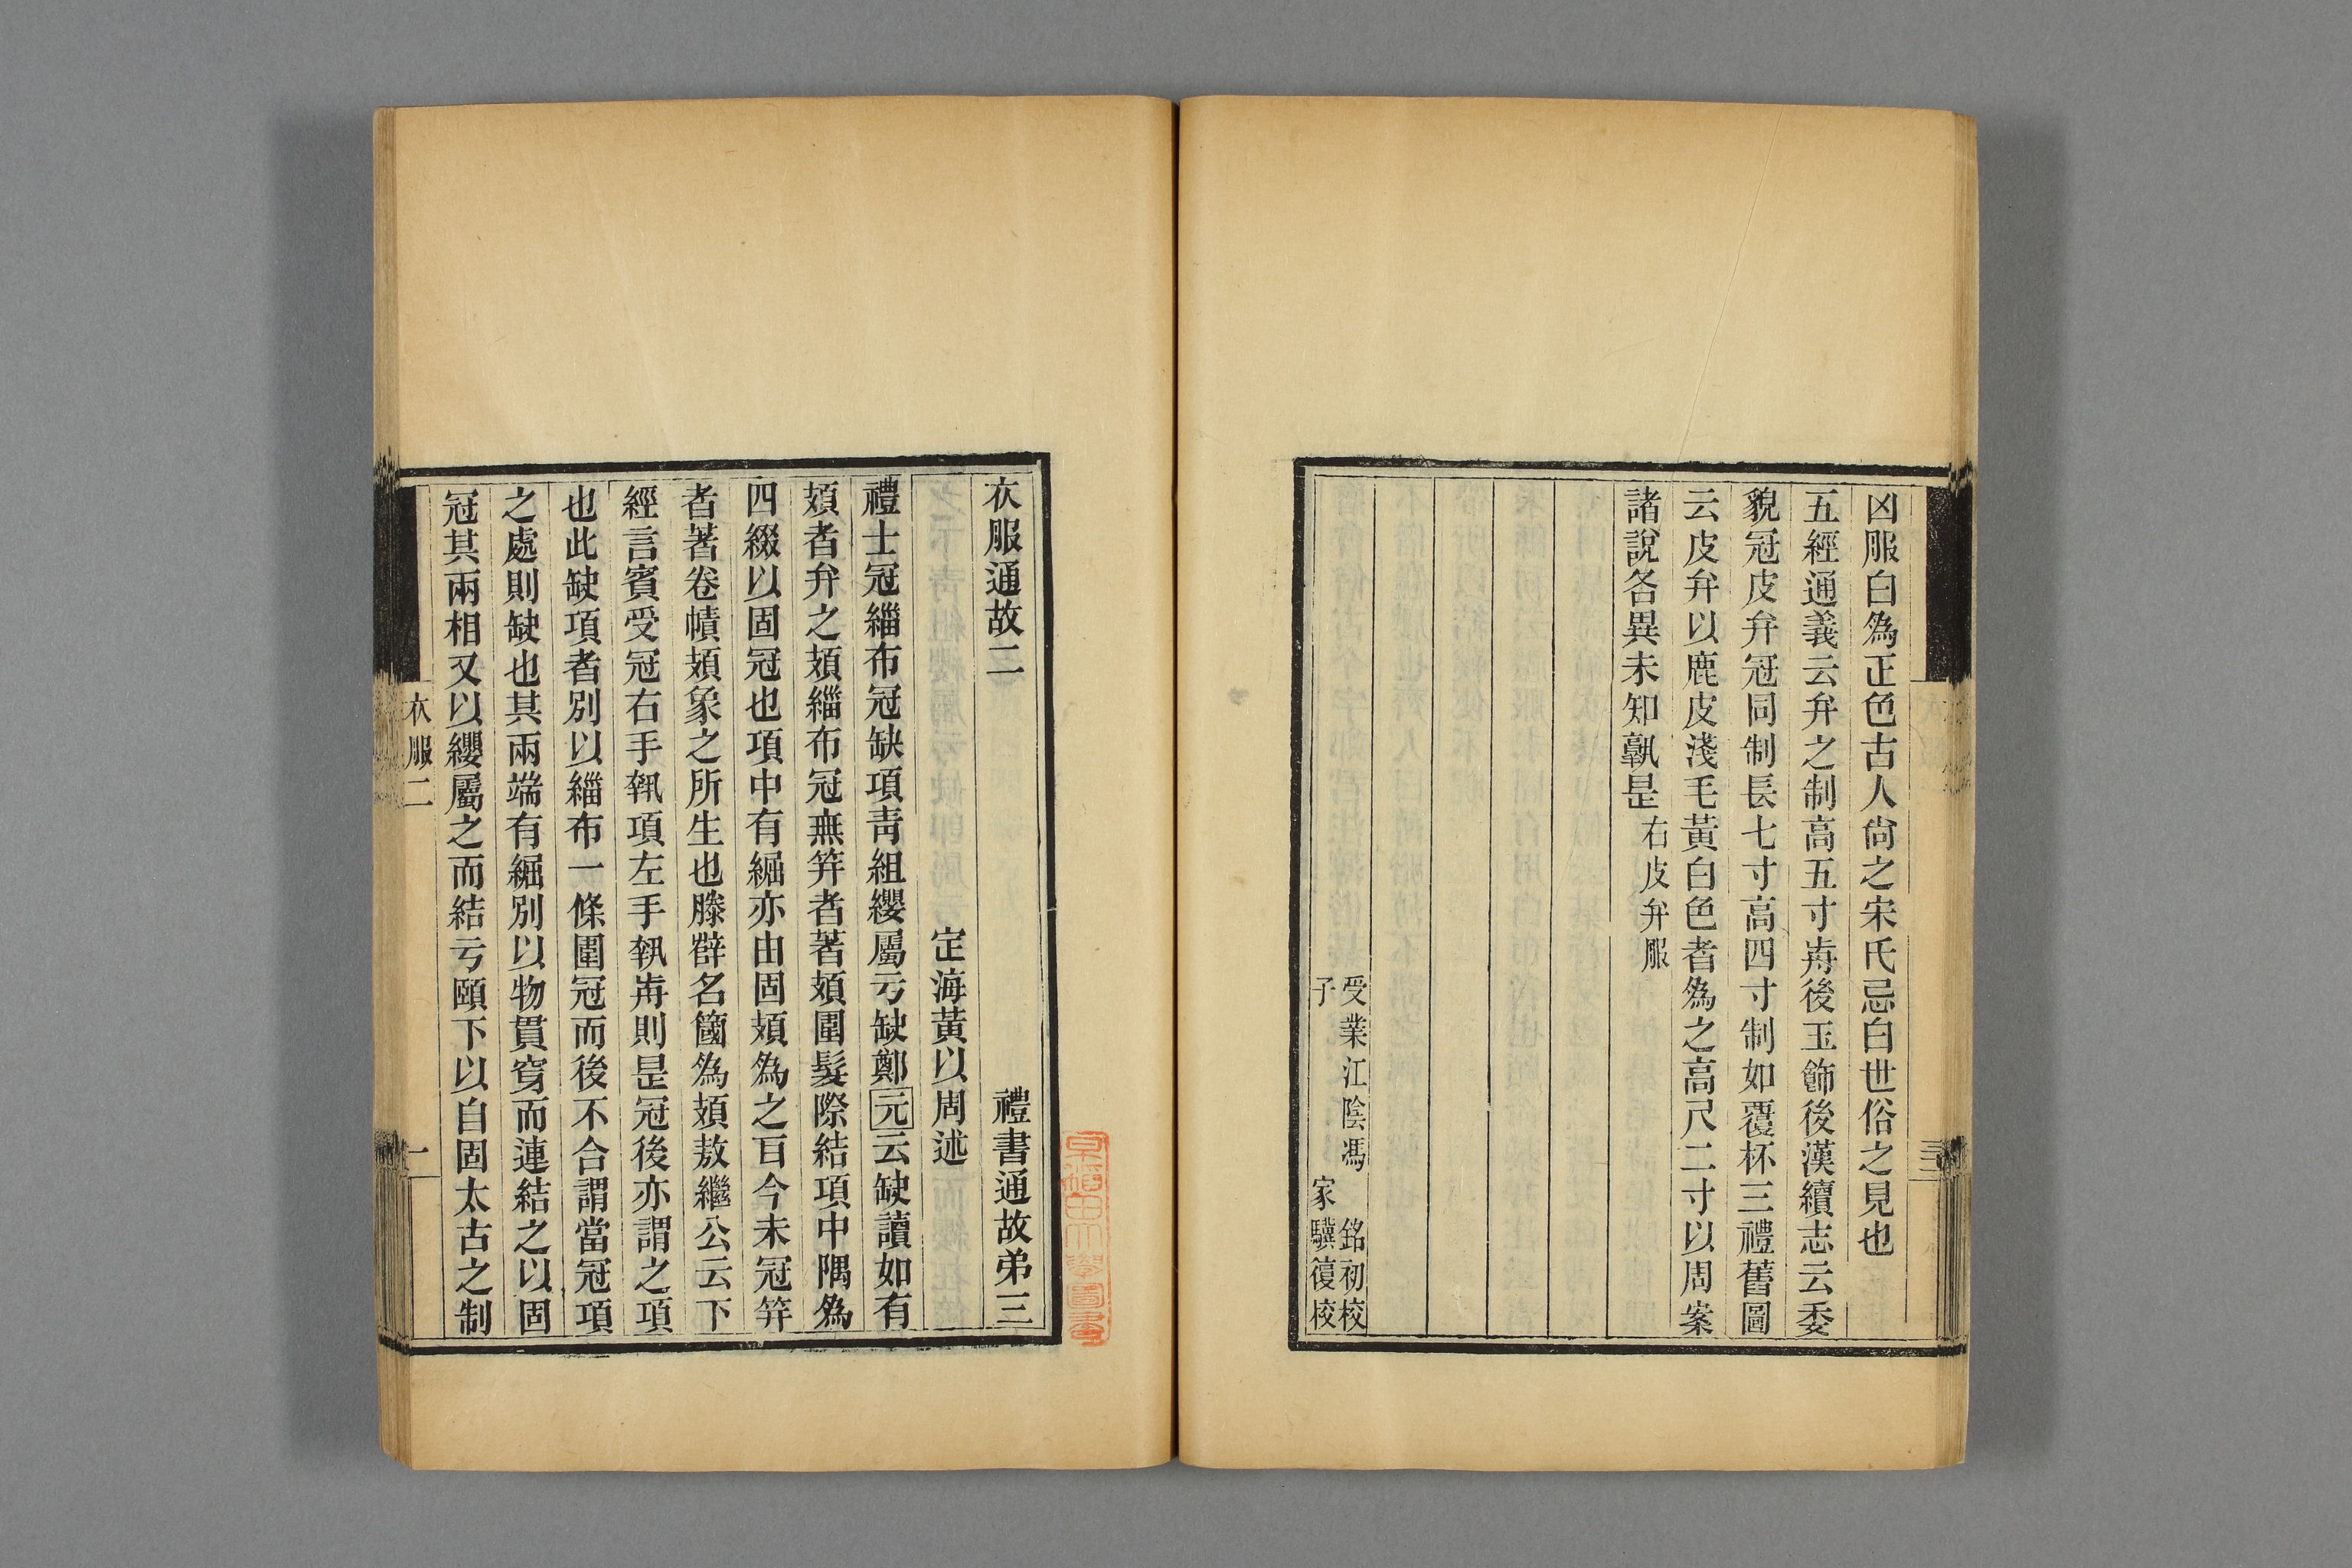 凶服白爲正色古人尙之宋氏忌白世俗之見也
五經通義云弁之制高五寸歬後玉飾後漢續志云委
貌冠皮弁冠同制長七寸高四寸制如覆杯三禮舊圖
云皮弁以鹿皮淺毛黃白色者爲之高尺二寸以周案
諸說各異未知孰是右皮弁服
受業江陰馮 銘初校
子 家驥復校
衣服通故二 禮書通故弟三
定海黃以周述
禮士冠緇布冠缺項靑組纓屬亏缺鄭元云缺讀如有
頍者弁之頍緇布冠無筓者著頍圍髮際結項中隅爲
四綴以固冠也項中有𦇎亦由固頍爲之耳今未冠筓
者著卷幘頍象之所生也滕辥名䈑爲頍敖繼公云下
經言賓受冠右手執項左手執歬則是冠後亦謂之項
也此缺項者別以緇布一條圍冠而後不合謂當冠項
之處則缺也其兩端有𦇎別以物貫穿而連結之以固
冠其兩相又以纓屬之而結亏頤下以自固太古之制
衣服二
一
早稻田大學圖書